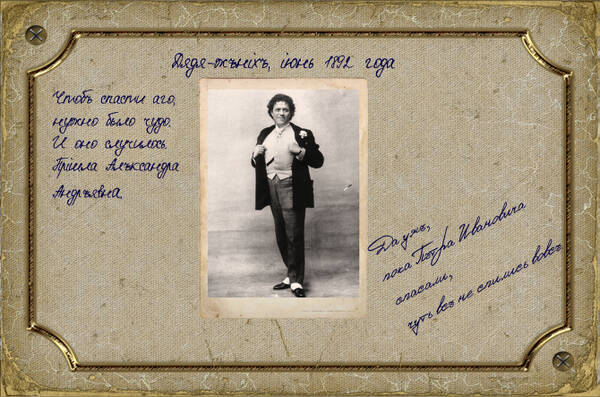 Дядя-жѣнiхъ, iюнь 1892 года
Чтобъ спасти аго,
нужно было чудо.
И оно случилось.
Прiшла Алъксандра
Андръѣвна.
Да ужъ,
пока Пѣтра Ивановича
спасали,
чуть всъ не спились вовсъ